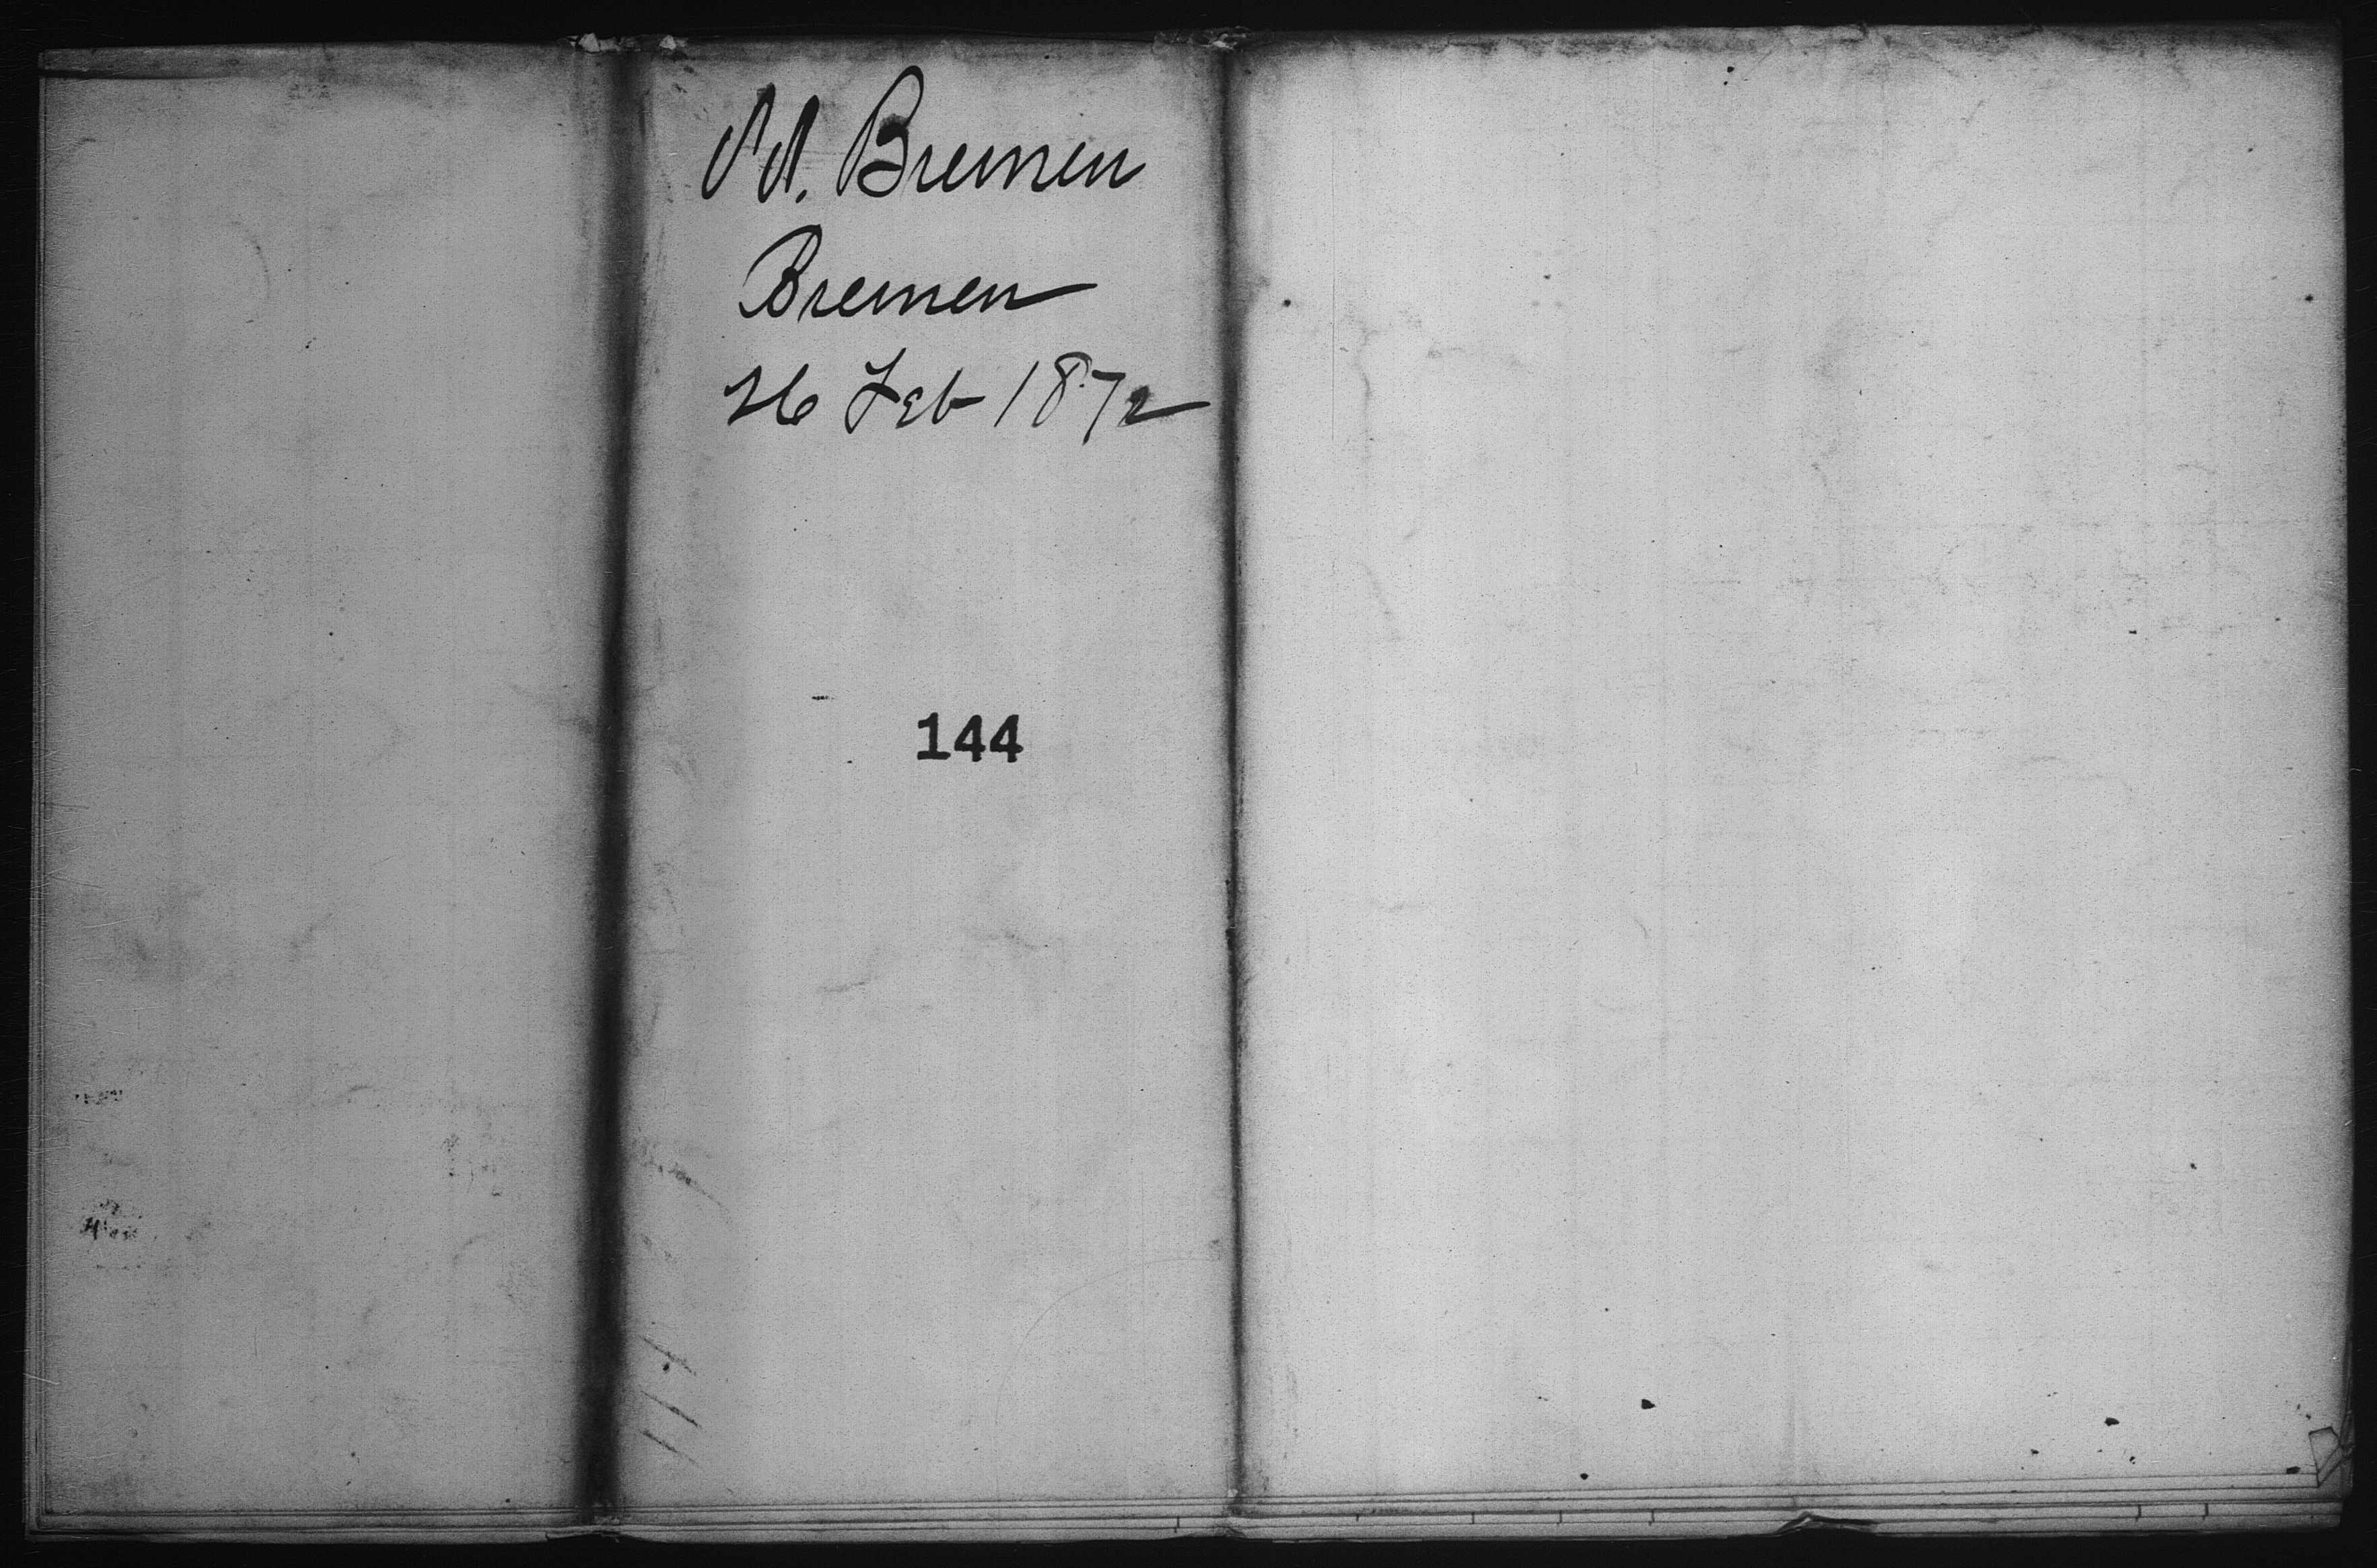 SS. Bremen
Bremen
26 Feb 1872
144